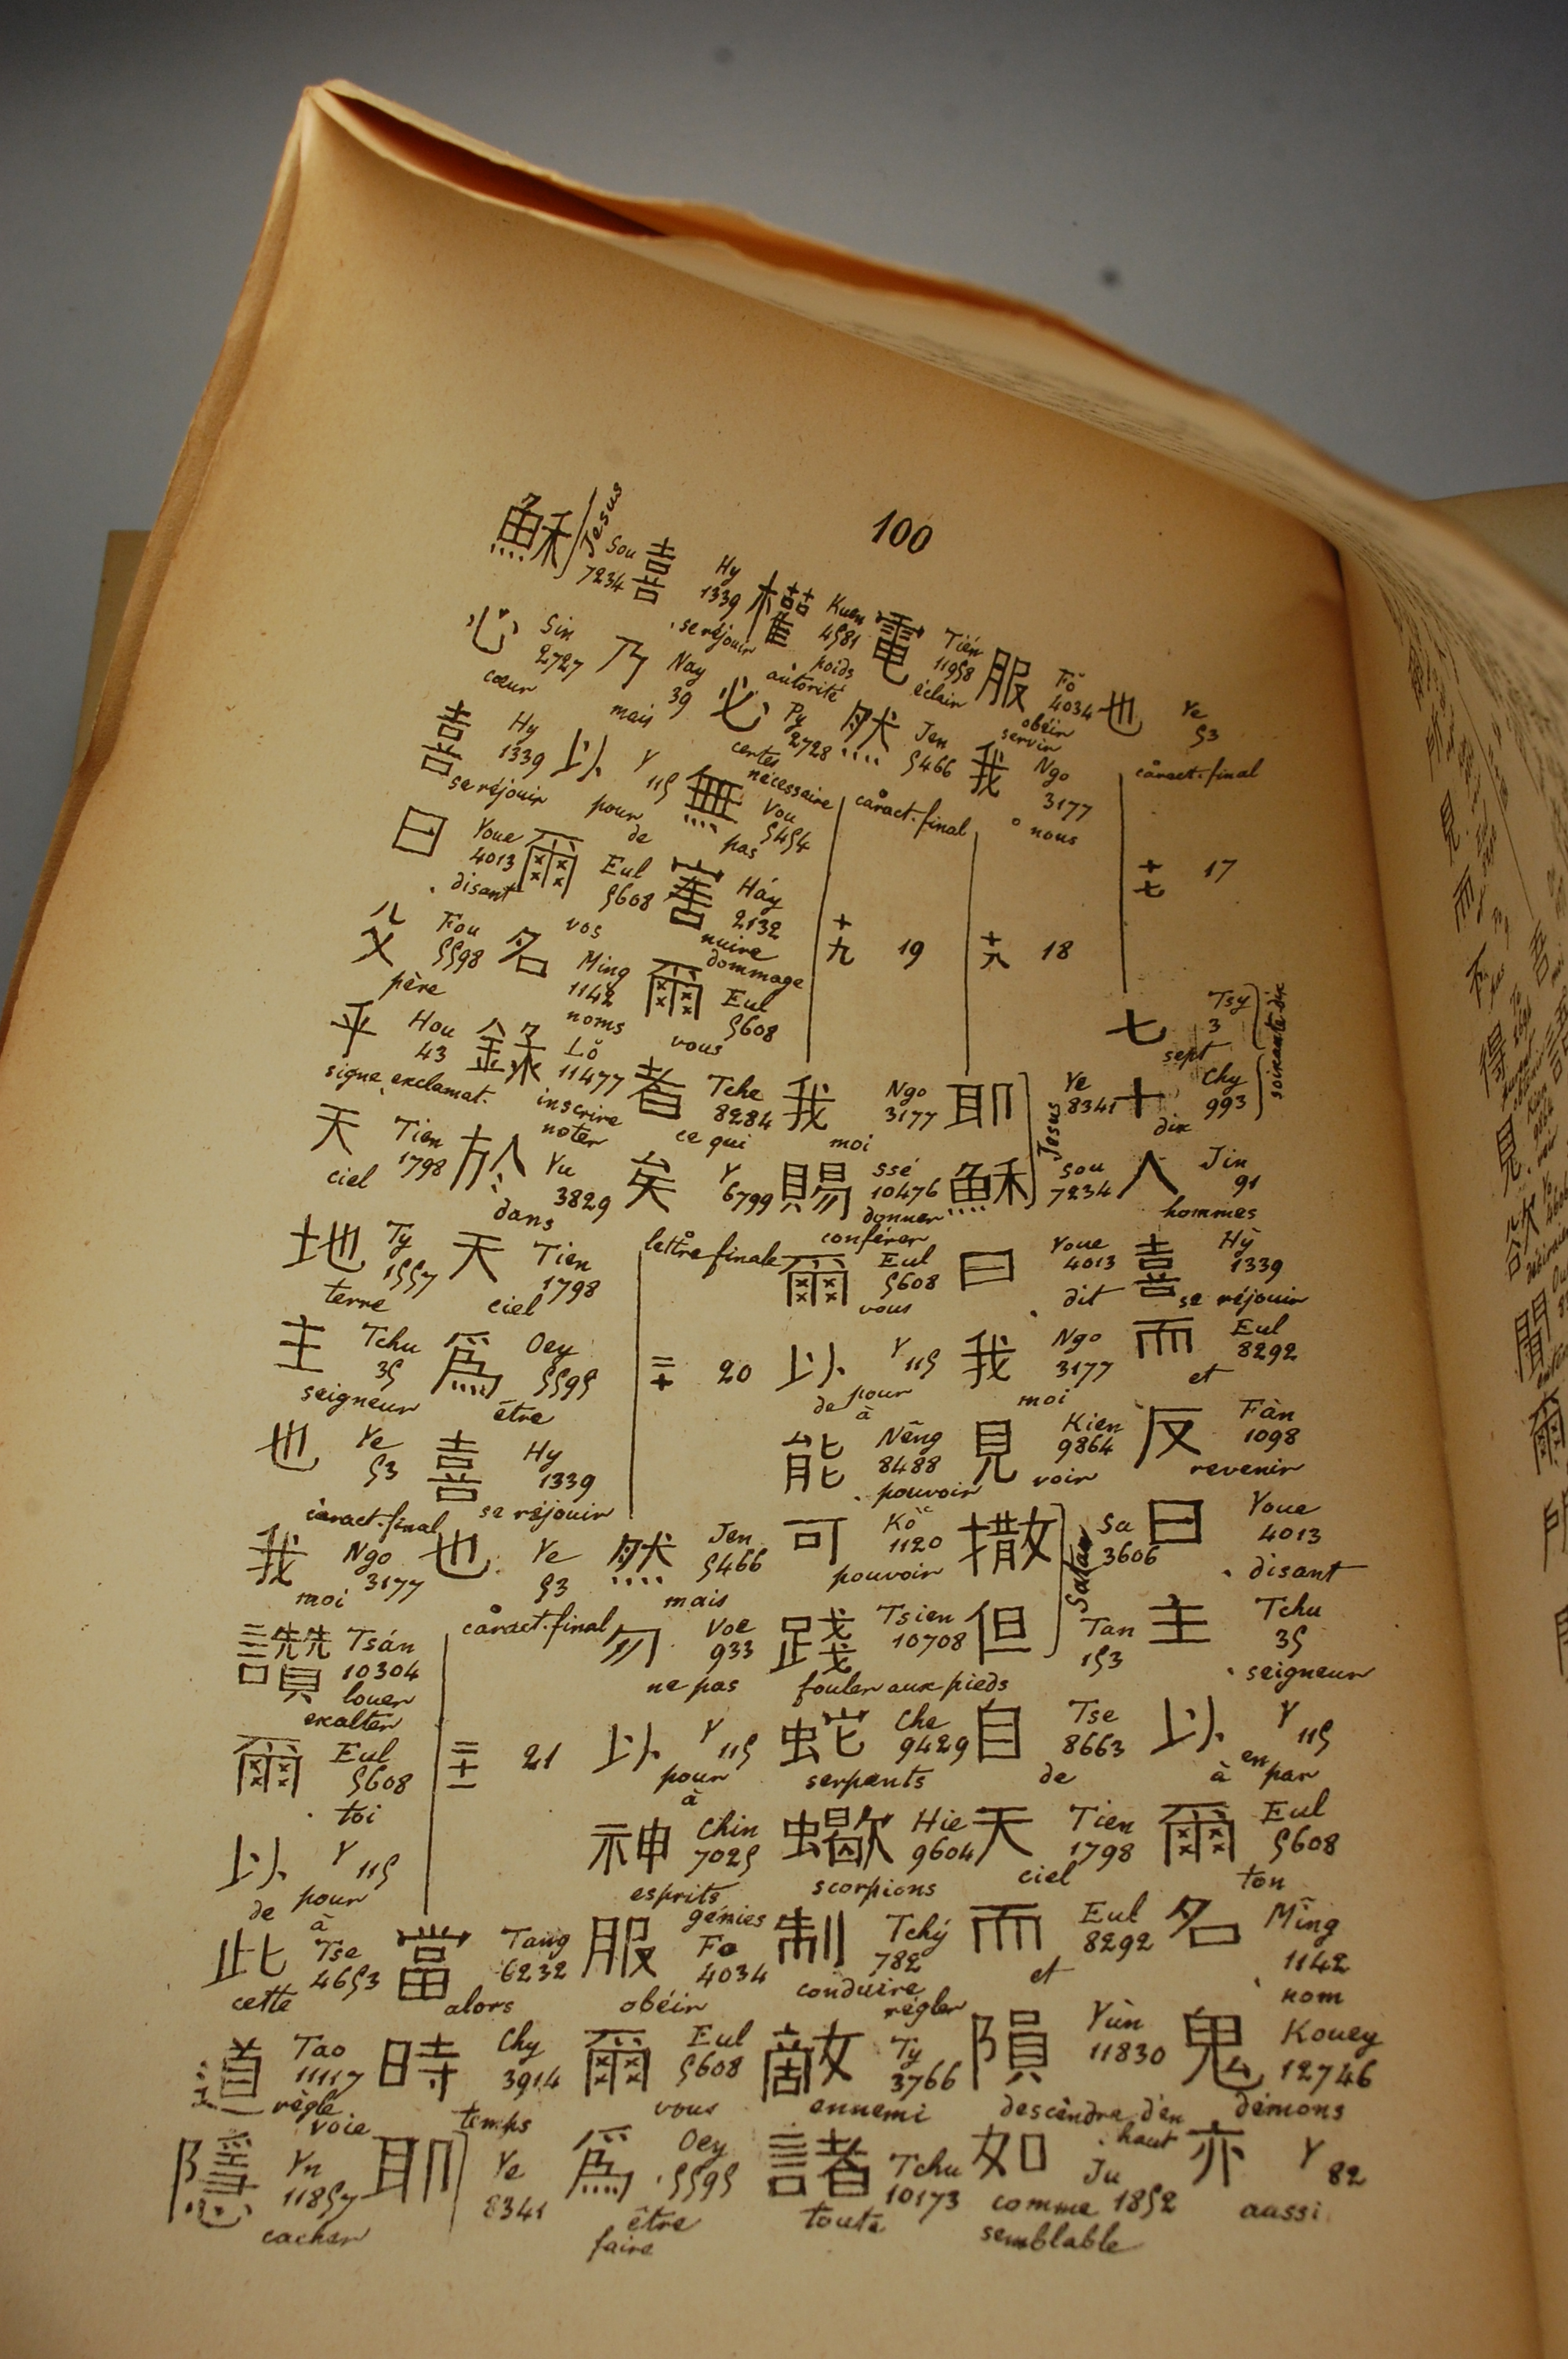 100
也 Ye 53 caract. final
十七 17
七 Tsy 3 sept
十 Chy 993 dix
soixante-dix
人 Jin 91 hommes
喜 Hỳ 1339 se réjouir
而 Eul 8292 et
反 Fàn 1098 revenir
曰 Youe 4013 disant
主 Tchu 35 seigneur
以 Y 115 à en par
爾 Eul 5608 ton
名 Mîng 1142 nom
鬼 Kouey 12746 démons
亦 Y 82 aussi
服 Fŏ 4034 obéir servir
我 Ngo 3177 nous
十八 18
耶 Ye 8341
穌 Sou 7234
Jesus
曰 Youe 4013 dit
我 Ngo 3177 moi
見 Kien 9864 voir
撒 Sa 3606
但 Tan 153
Satan
自 Tse 8663 de
天 Tien 1798 ciel
而 Eul 8292 et
隕 Yùn 11830 descendre d'en haut
如 Ju 1852 comme semblable
電 Tién 11958 éclair
然 Jen 5466 caract. final
十九 19
我 Ngo 3177 moi
賜 Ssé 10476 donner conférer
爾 Eul 5608 vous
以 Y 115 de pour à
能 Nêng 8488 pouvoir
可 Kŏ 1120 pouvoir
踐 Tsien 10708 fouler aux pieds
蛇 Che 9429 serpents
蠍 Hie 9604 scorpions
制 Tchý 782 conduire régler
敵 Ty 3766 ennemi
諸 Tchu 10173 toute
權 Kuen 4581 poids autorité
必 Py 2728 certes nécessaire
無 Vou 5454 pas
害 Háy 2132 nuire dommage
爾 Eul 5608 vous
者 Tche 8284 ce qui
矣 Y 6799 lettre finale
二十 20
然 Jen 5466 mais
勿 Voe 933 ne pas
以 Y 115 pour à
神 Chin 7025 esprits génies
服 Fo 4034 obéir
爾 Eul 5608 vous
爲 Oey 5595 être faire
喜 Hy 1339 se réjouir
乃 Nay 39 mais
以 Y 115 pour de
爾 Eul 5608 vos
名 Ming 1142 noms
錄 Lŏ 11477 inscrire noter
於 Yu 3829 dans
天 Tien 1798 ciel
爲 Oey 5595 être
喜 Hy 1339 se réjouir
也 Ye 53 caract. final
二十一 21
當 Tang 6232 alors
時 Chy 3914 temps
耶 Ye 8341
穌 Sou 7234
Jesus
心 Sin 2727 cœur
喜 Hy 1339 se réjouir
曰 Youe 4013 disant
父 Fou 5598 père
乎 Hou 43 signe exclamat.
天 Tien 1798 ciel
地 Ty 1557 terre
主 Tchu 35 seigneur
也 Ye 53 caract. final
我 Ngo 3177 moi
讚 Tsán 10304 louer exalter
爾 Eul 5608 toi
以 Y 115 de pour à
此 Tse 4653 cette
道 Tao 11117 règle voie
隱 Yn 11857 cacher